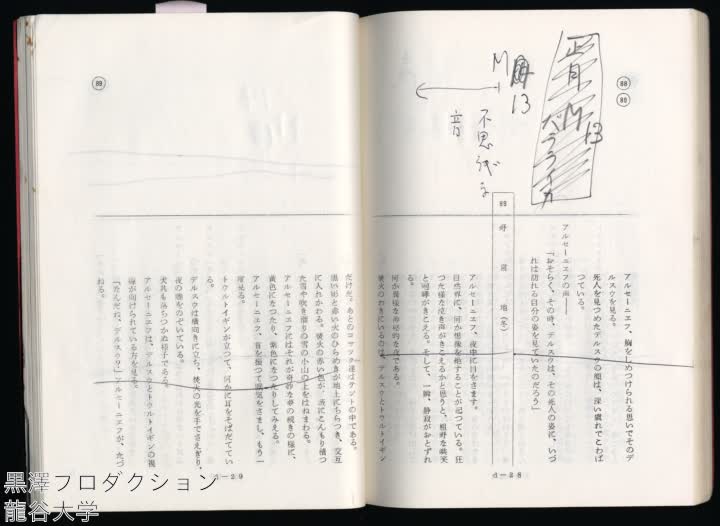 88
89
正月
M
13
バラライカ
M
13
不思議な
音
アルセーニエフ、胸を止めつけられる思いでそのデ
ルスウを見る。
死人を見つめたデルスウの顔は、深い畏れでこわば
つている。
アルセーニエフの声――
「おそらく、その時、デルスウは、その死人の姿に、いづ
れは訪れる自分の姿を見ていたのだろう」
89 野営地（冬）
アルセーニエフ、夜中に目をさます。
自然界に、何か想像を絶することが起つている。狂
つた様な泣き声がきこえるかと思うと、粗野な哄笑
と咆哮がきこえる。そして、一瞬、静寂がおとずれ
何か異様な神秘的な夜である。
焚火のわきにいるのは、デルスウとトウルトイギン
A-28
89
だけだ。あとのコサック達はテントの中である。
黒い影と赤い火のひらめきが地上にちらつき、交互
に入れかわる。焚火の赤い色が、
た雪や吹き溜りの雪の小山の上をはねまわる。
アルセーニエフにはそれが奇妙な夢の続きの様に、
黄色になつたり、紫色になつたりしてみえる。
アルセーニエフ、首を振つて眠気をさまし、もう一
度見る。
トウルトイギンが立つて、何かに耳をそばだててい
る。
デルスウは横向きに立ち、焚火の光を手でさえぎり、
夜の闇をのぞいている。
犬共も落ちつかぬ様子である。
アルセーニエフは、デルスウとトウルトイギンの視
線が向けられている方を見る。
「なんだね、デルスウ？」アルセーニエフが、たづ
ねる。
A-29
黒澤プロダクション
龍谷大学